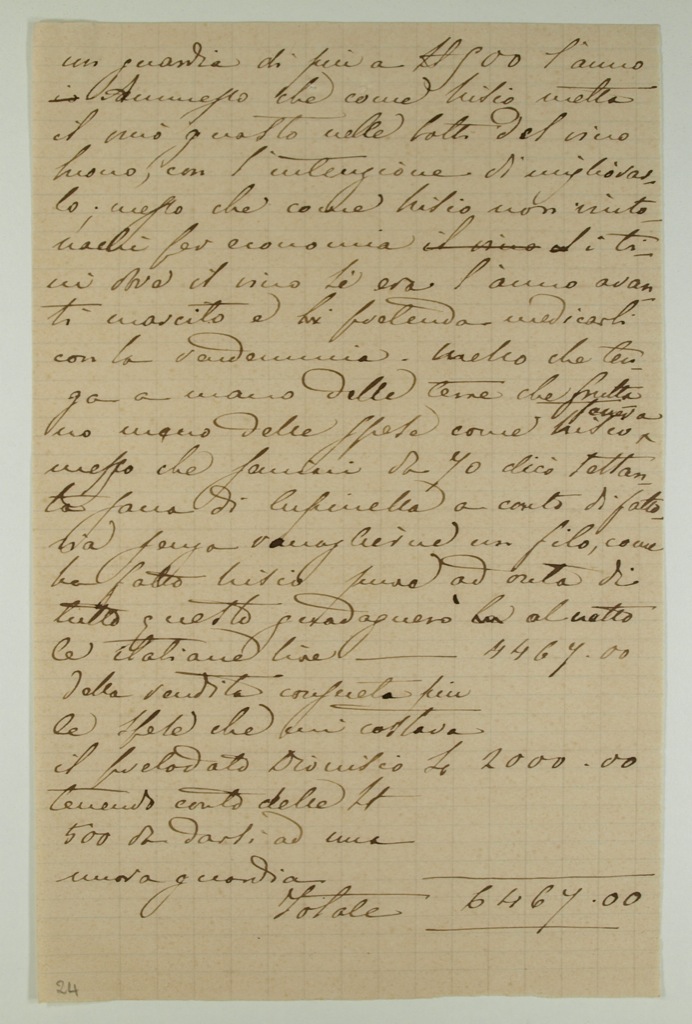 un guardia di piu a ₶ 500 l'anno
in Ammesso che come Nisio metta
il vino guasto nelle botti del vino
buono, con l'intenzione di migliorar-
lo; messo che come Nisio non into-
nachi per economia il vino d i ti-
ni ove il vino li era l'anno avan-
ti marcito e pretenda medicarli
con la vendemmia. Messo che ten-
ga a mano delle terre che frutta
no meno delle spese come Nisio faceva
messo che semini da 70 dico settan-
ta sacca di lupinella a conto di fatto-
ria senza raccoglierne un filo, come
ha fatto Nisio pure ad onta di
tutto questo guadagnerò al netto
le italiane lire —— 4467.00
della vendita consueta piu
le spese che mi costava
il prelodato Dionisio ₶ 2000.00
tenendo conto delle ₶
500 da darsi ad una
nuova guardia
Totale 6467.00
24